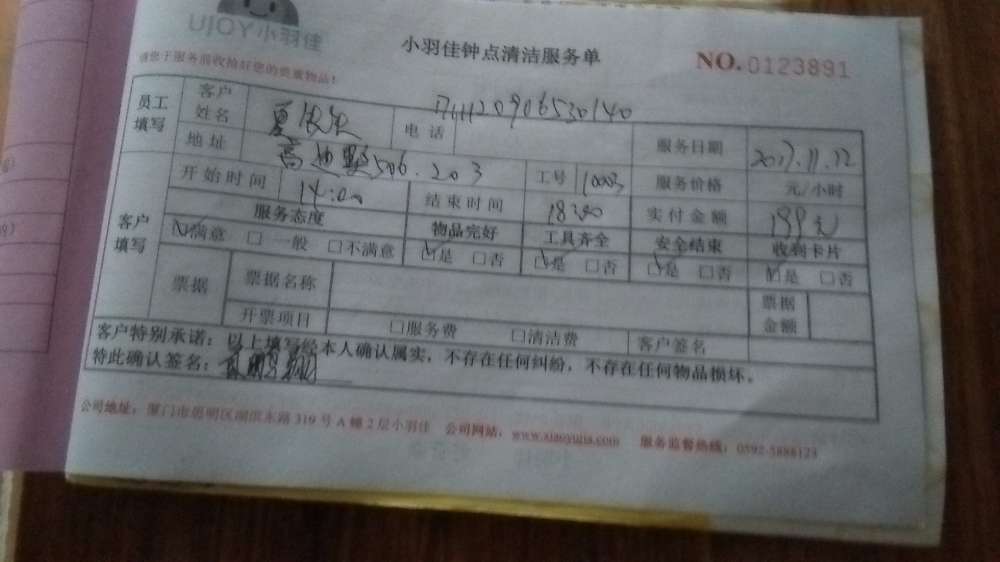 UJOY小羽佳
小羽佳钟点清洁服务单
NO.0123891
请您于服务前收拾好您的贵重物品！
员工填写
客户姓名 夏
电话 20906530140
服务日期 2017.11.12
地址 506.203
工号 10003
服务价格 元/小时
客户填写
开始时间 14:00
结束时间 18:30
实付金额 199元
服务态度 物品完好 工具齐全 安全结束 收到卡片
☑满意 □一般 □不满意 ☑是 □否 ☑是 □否 ☑是 □否 ☑是 □否
票据
票据名称
票据金额
开票项目 □服务费 □清洁费 客户签名
客户特别承诺：以上填写经本人确认属实，不存在任何纠纷，不存在任何物品损坏。
特此确认签名：
公司地址：厦门市思明区湖滨东路319号A幢2层小羽佳 公司网站：www.xiaoyujia.com 服务监督热线：0592-5888123